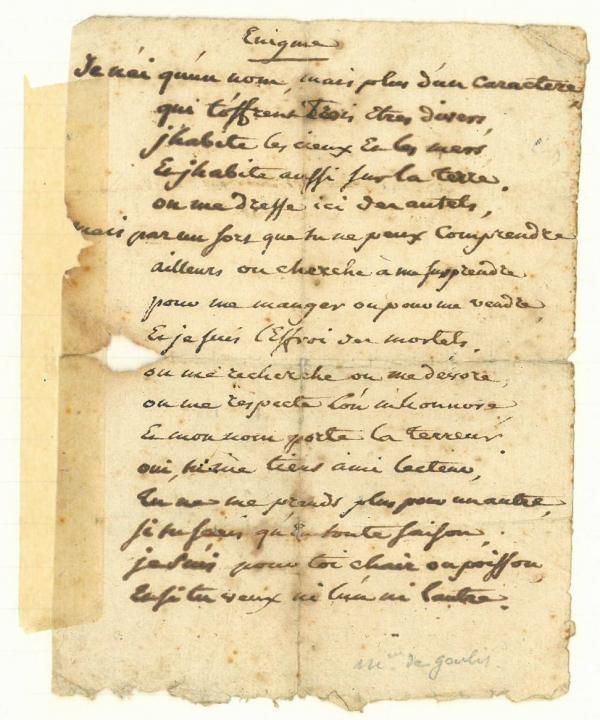 Enigme
Je n'ai qu'un nom, mais plus d'un caractere,
qui t'offrent trois etres divers,
j'habite les cieux Et les mers
Et j'habite aussi sur la terre.
on me dresse ici des autels,
mais par un sort que tu ne peux Comprendre
ailleurs on cherche à me surprendre
pour me manger ou pour me vendre,
Et je suis l'Effroi des mortels.
on me recherche on me devore,
on me respecte l'on m'honnore
Et mon nom porte la terreur
oui, tiens ami lecteur,
Tu ne me prends plus pour un autre,
si tu scais qu'En toute saison,
je suis pour toi chair ou poisson,
Et si tu veux ni l'un ni l'autre.
de